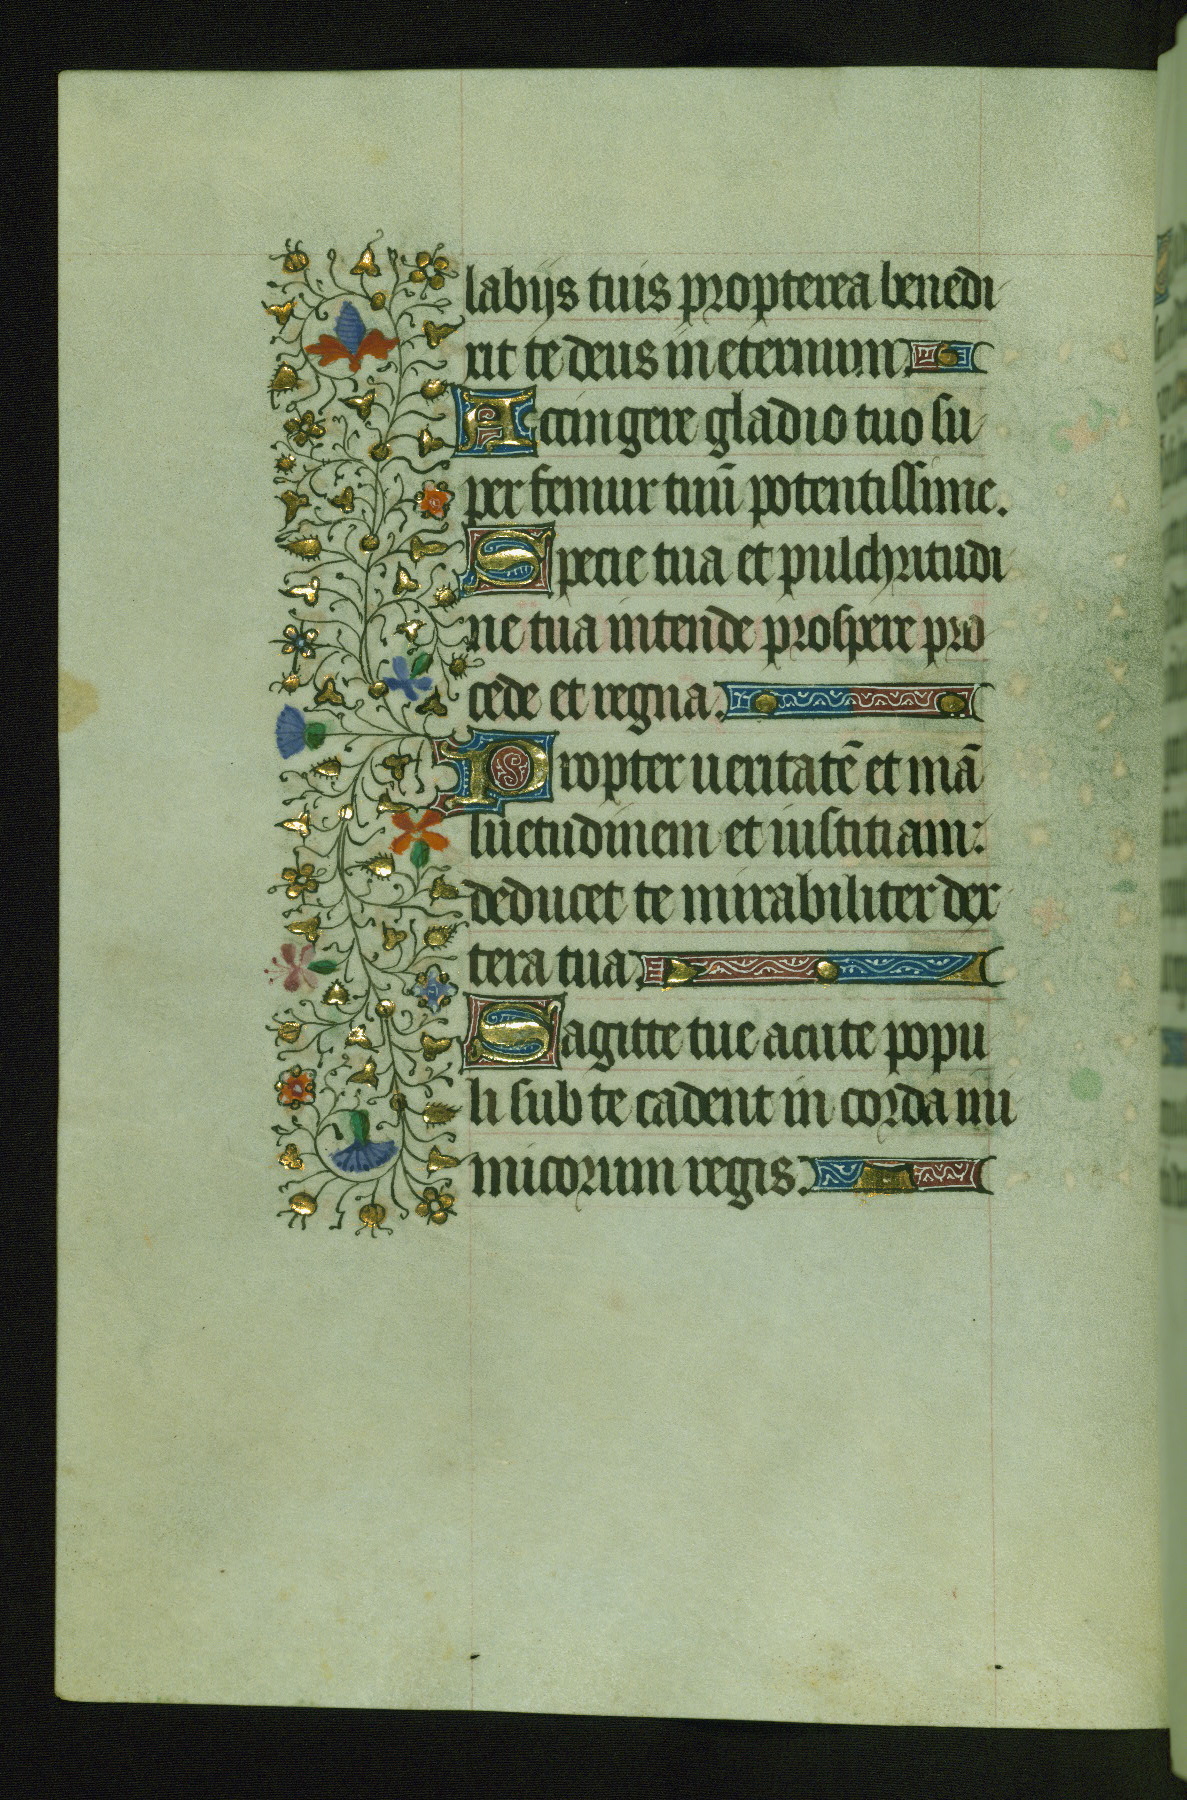 labijs tuis propterea benedi
xit te deus in eternum.
Accingere gladio tuo su
per femur tuū potentissime.
Specie tua et pulchritudi
ne tua intende prospere pro
cede et regna.
Propter ueritatē et mā
suetudinem et iusticiam:
deducet te mirabiliter dex
tera tua.
Sagitte tue acute popu
li sub te cadent in corda ini
micorum regis.